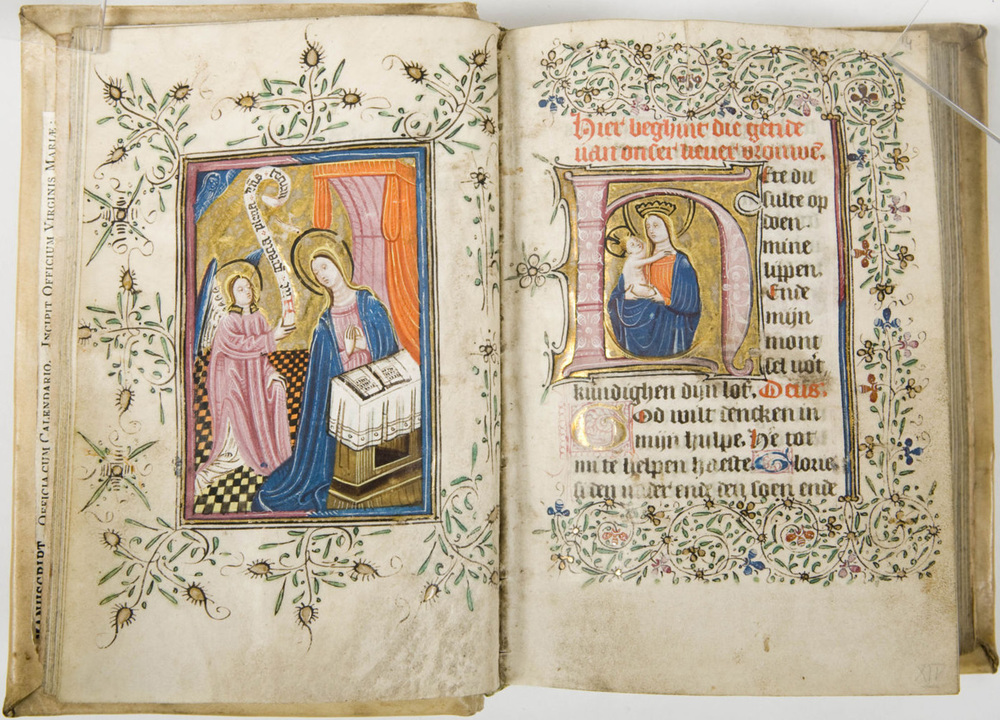 MANUSCRIPT. OFFICIACUM CALENDARIO. INCIPIT OFFICIUM VIRGINIS MARIÆ:
Aue gracia plena dns tecum
Hier beghint die getide
van onser lieuer vrouwē.
Here du
sulte op
doen
mine
lippen.
Ende
mijn
mont
sel vōt
kundighen dijn lof. Deus.
God wilt dencken in
mijn hulpe. He tot
mi te helpen haeste. Glorie
si den vader ende den soen ende